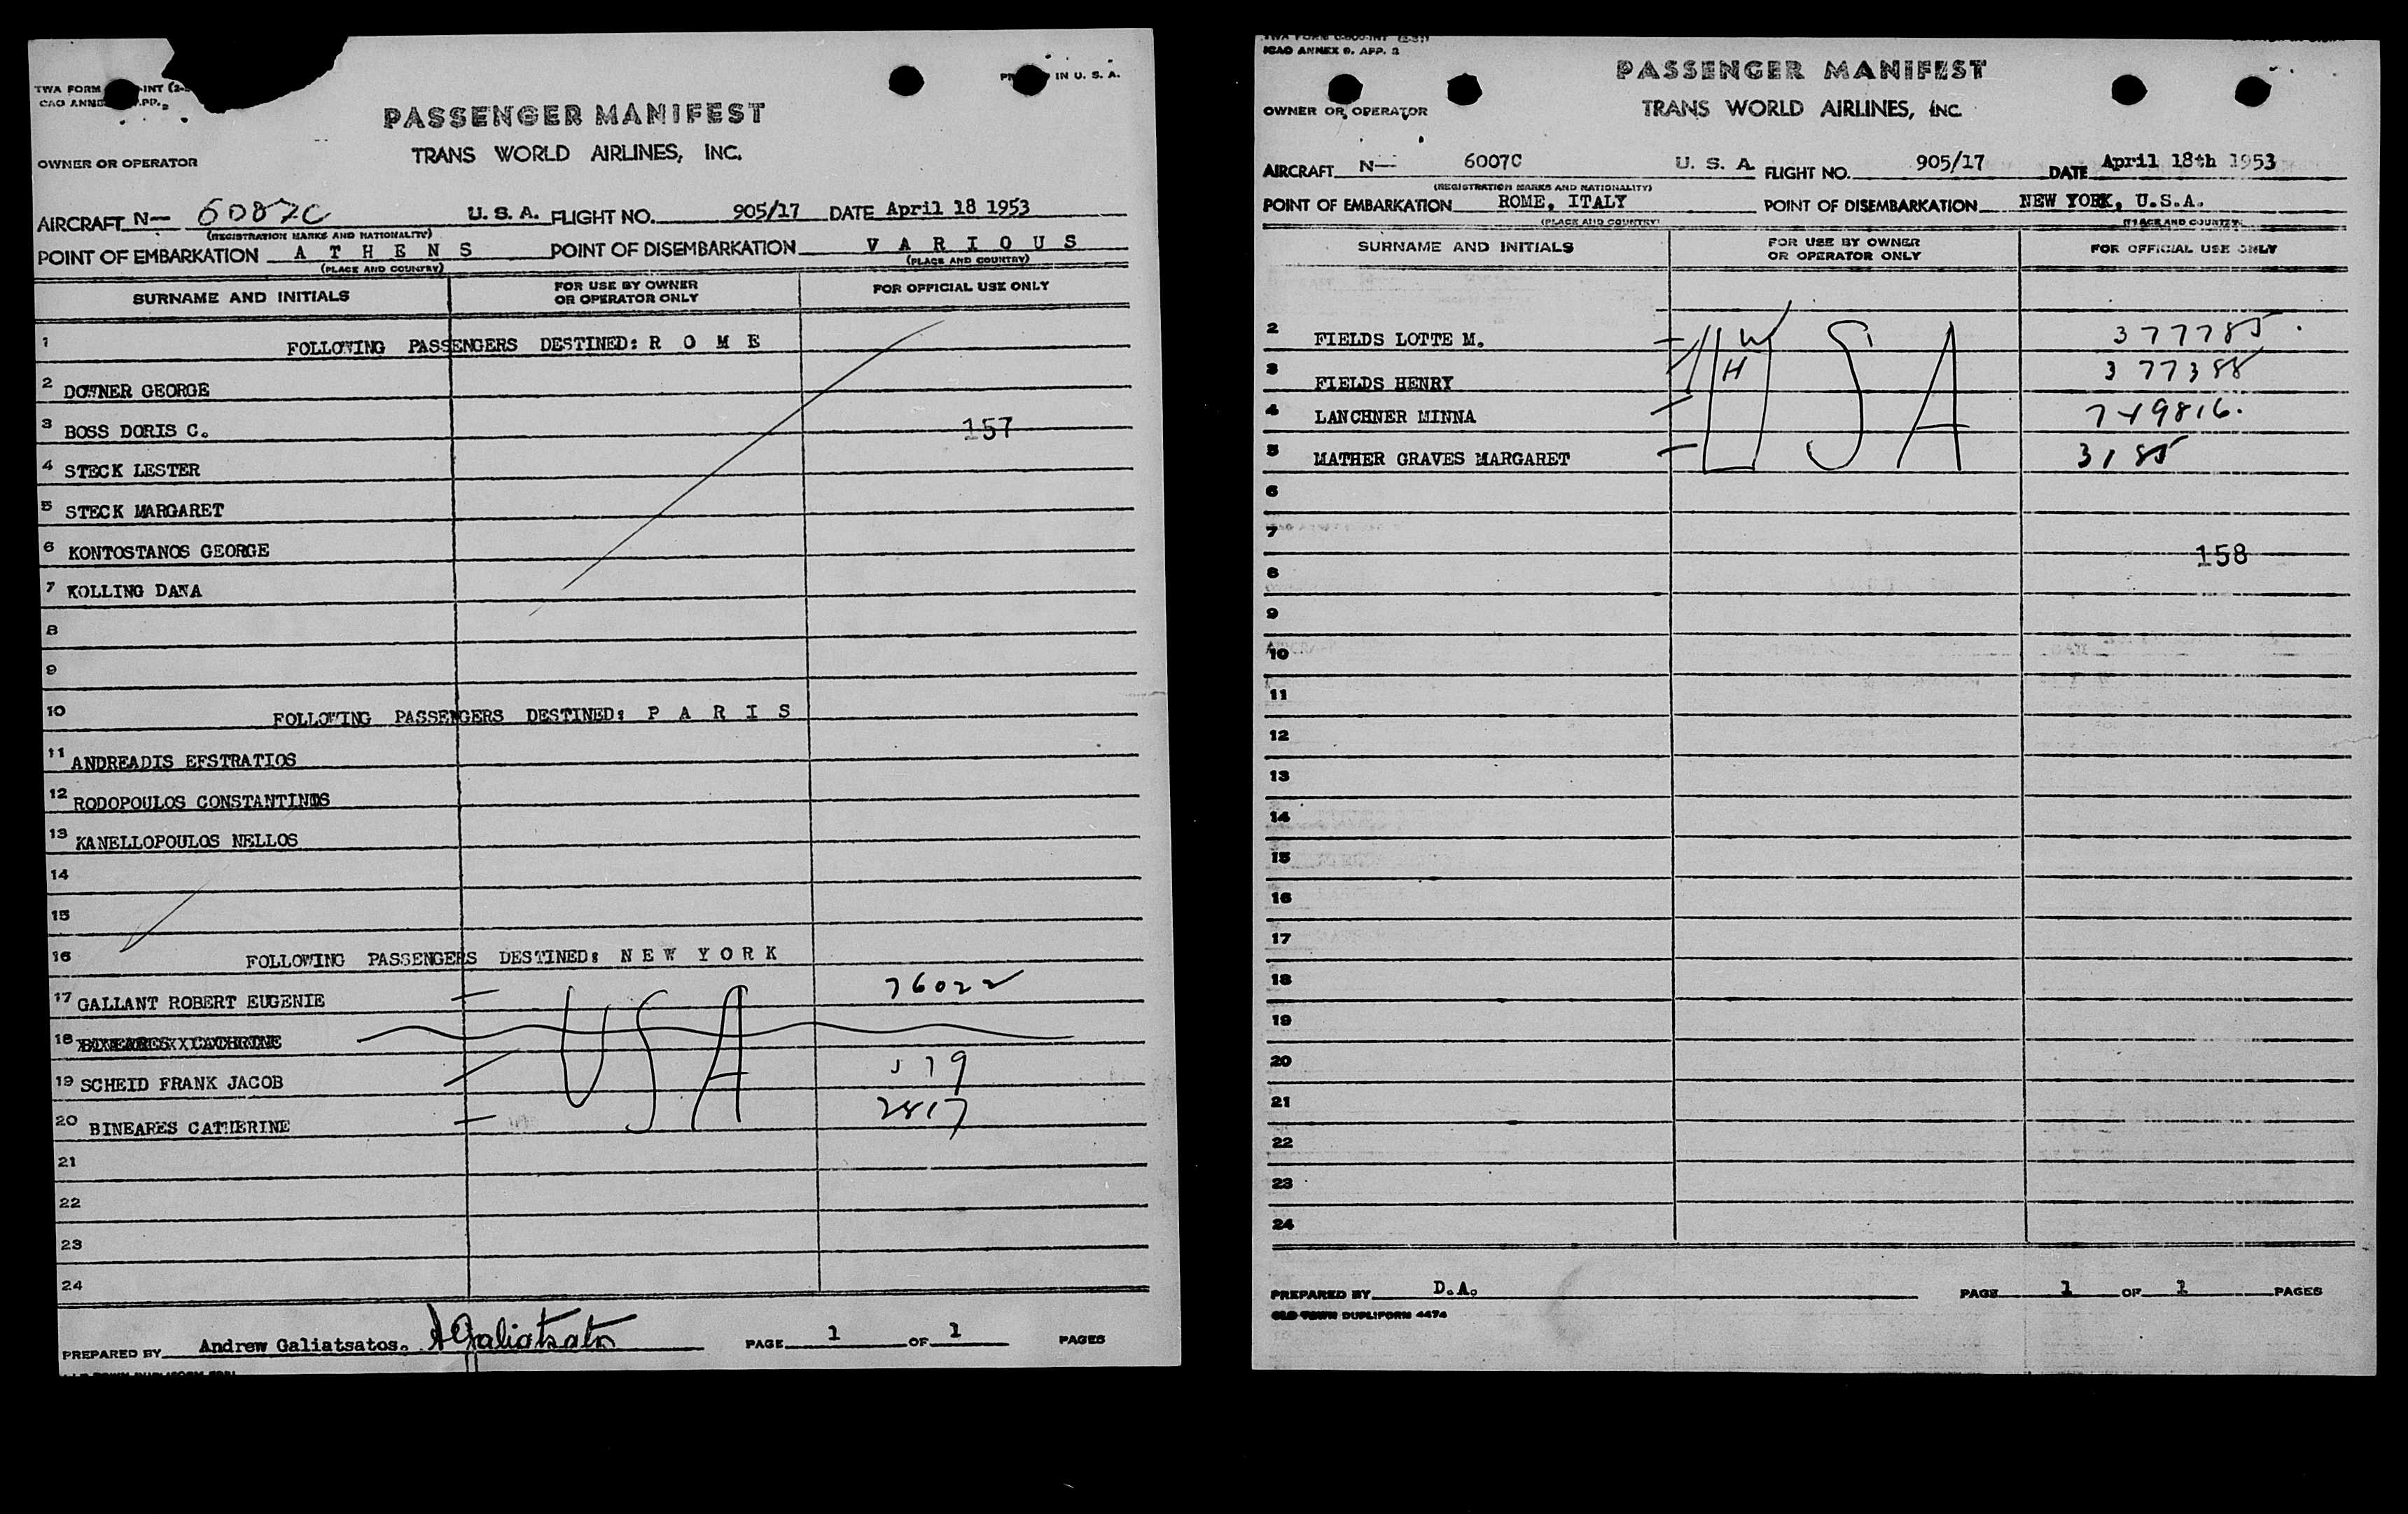 TWA FORM INT (2-5
CAO ANNE APP. 2
IN U. S. A.
PASSENGER MANIFEST
TRANS WORLD AIRLINES, INC.
OWNER OR OPERATOR
AIRCRAFT N— 6087C U. S. A. FLIGHT NO. 905/17 DATE April 18 1953
(REGISTRATION MARKS AND NATIONALITY)
POINT OF EMBARKATION A T H E N S POINT OF DISEMBARKATION V A R I O U S
(PLACE AND COUNTRY) (PLACE AND COUNTRY)
SURNAME AND INITIALS FOR USE BY OWNER OR OPERATOR ONLY FOR OFFICIAL USE ONLY
1 FOLLOWING PASSENGERS DESTINED: R O M E
2 DOWNER GEORGE
3 BOSS DORIS C. 157
4 STECK LESTER
5 STECK MARGARET
6 KONTOSTANOS GEORGE
7 KOLLING DANA
8
9
10 FOLLOWING PASSENGERS DESTINED: P A R I S
11 ANDREADIS EFSTRATIOS
12 RODOPOULOS CONSTANTINOS
13 KANELLOPOULOS NELLOS
14
15
16 FOLLOWING PASSENGERS DESTINED: N E W Y O R K
17 GALLANT ROBERT EUGENIE 76022
18 BINEARES CATHRINE
USA
19 SCHEID FRANK JACOB
20 BINEARES CATHERINE 2817
21
22
23
24
PREPARED BY Andrew Galiatsatos. AGaliatsatos PAGE 1 OF 1 PAGES
ICAO ANNEX 9. APP. 2
PASSENGER MANIFEST
OWNER OR OPERATOR TRANS WORLD AIRLINES, INC.
AIRCRAFT N— 6007C U. S. A. FLIGHT NO. 905/17 DATE April 18th 1953
(REGISTRATION MARKS AND NATIONALITY)
POINT OF EMBARKATION ROME, ITALY POINT OF DISEMBARKATION NEW YORK, U.S.A.
(PLACE AND COUNTRY) (PLACE AND COUNTRY)
SURNAME AND INITIALS FOR USE BY OWNER OR OPERATOR ONLY FOR OFFICIAL USE ONLY
2 FIELDS LOTTE M. W 377785
3 FIELDS HENRY H 377388
USA
4 LANCHNER MINNA 749816.
5 MATHER GRAVES MARGARET 3185
6
7
158
8
9
10
11
12
13
14
15
16
17
18
19
20
21
22
23
24
PREPARED BY D.A. PAGE 1 OF 1 PAGES
OLD TOWN DUPLIFORM 4474